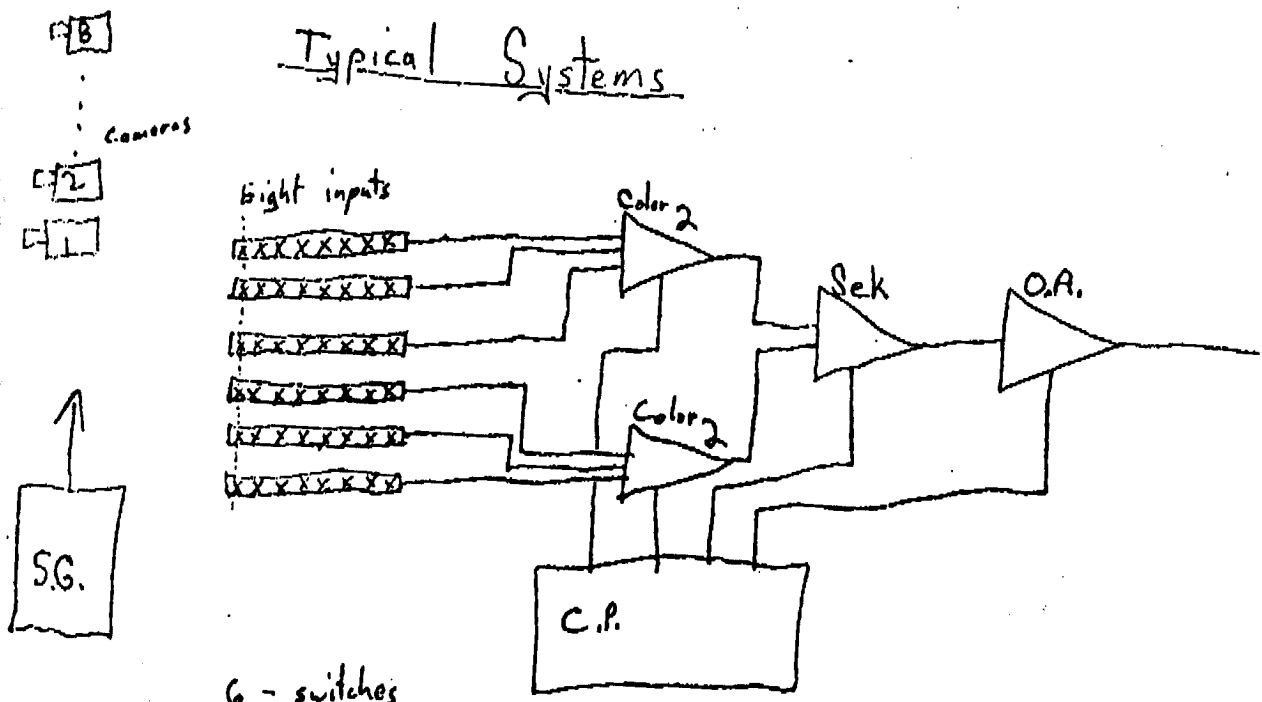 Typical Systems
8
cameras
2
1
Eight inputs
X X X X X X X X
X X X X X X X X
X X X X X X X X
X X X X X X X X
X X X X X X X X
X X X X X X X X
Color 2
Sek
O.A.
Color 2
S.G.
C.P.
6 - switches